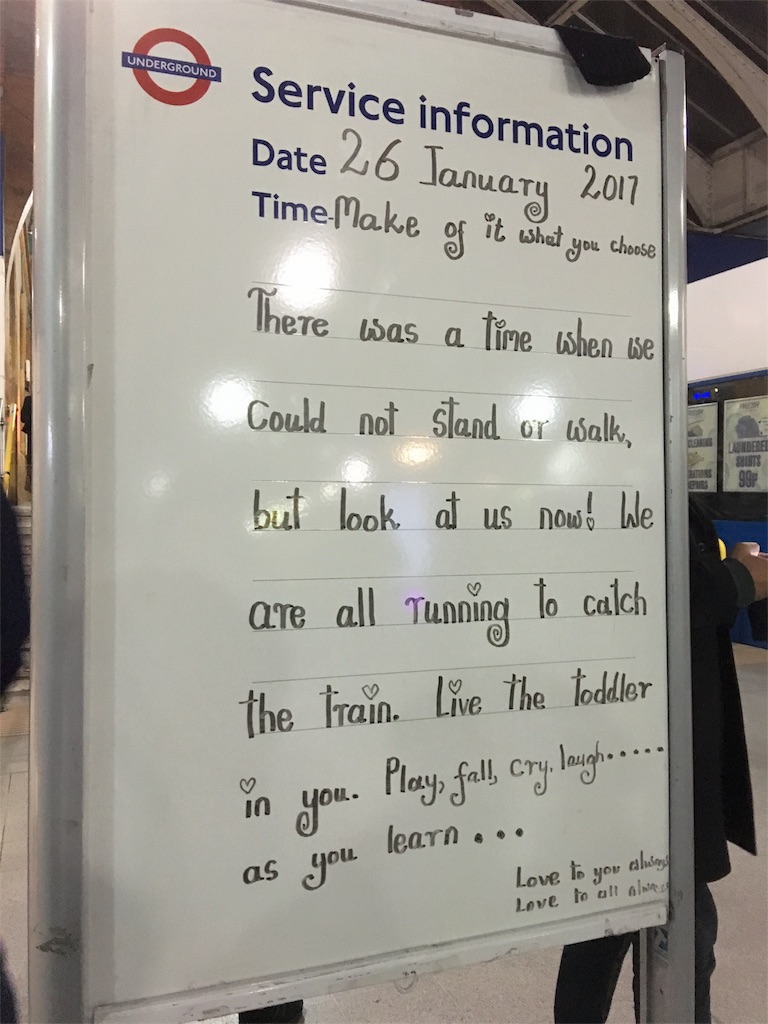 UNDERGROUND
Service information
Date 26 January 2017
Time-Make of it what you choose
There was a time when we
could not stand or walk,
but look at us now! We
are all running to catch
the train. Live the toddler
in you. Play, fall, cry, laugh.....
as you learn...
Love to you always
Love to all always
LAUNDERED
SHIRTS
99p